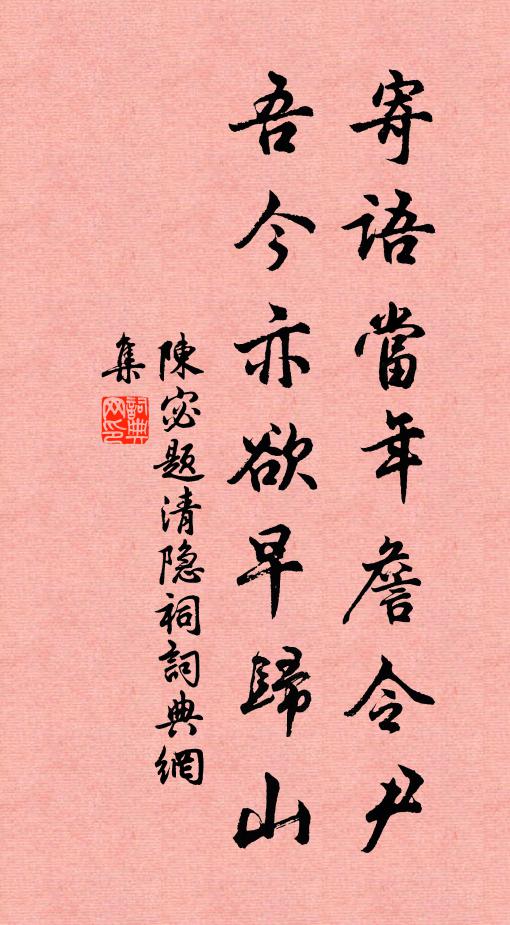 寄語當年詹令尹
吾今亦欲早歸山
陳宓題清隐祠詞典網
集
詞典
网印